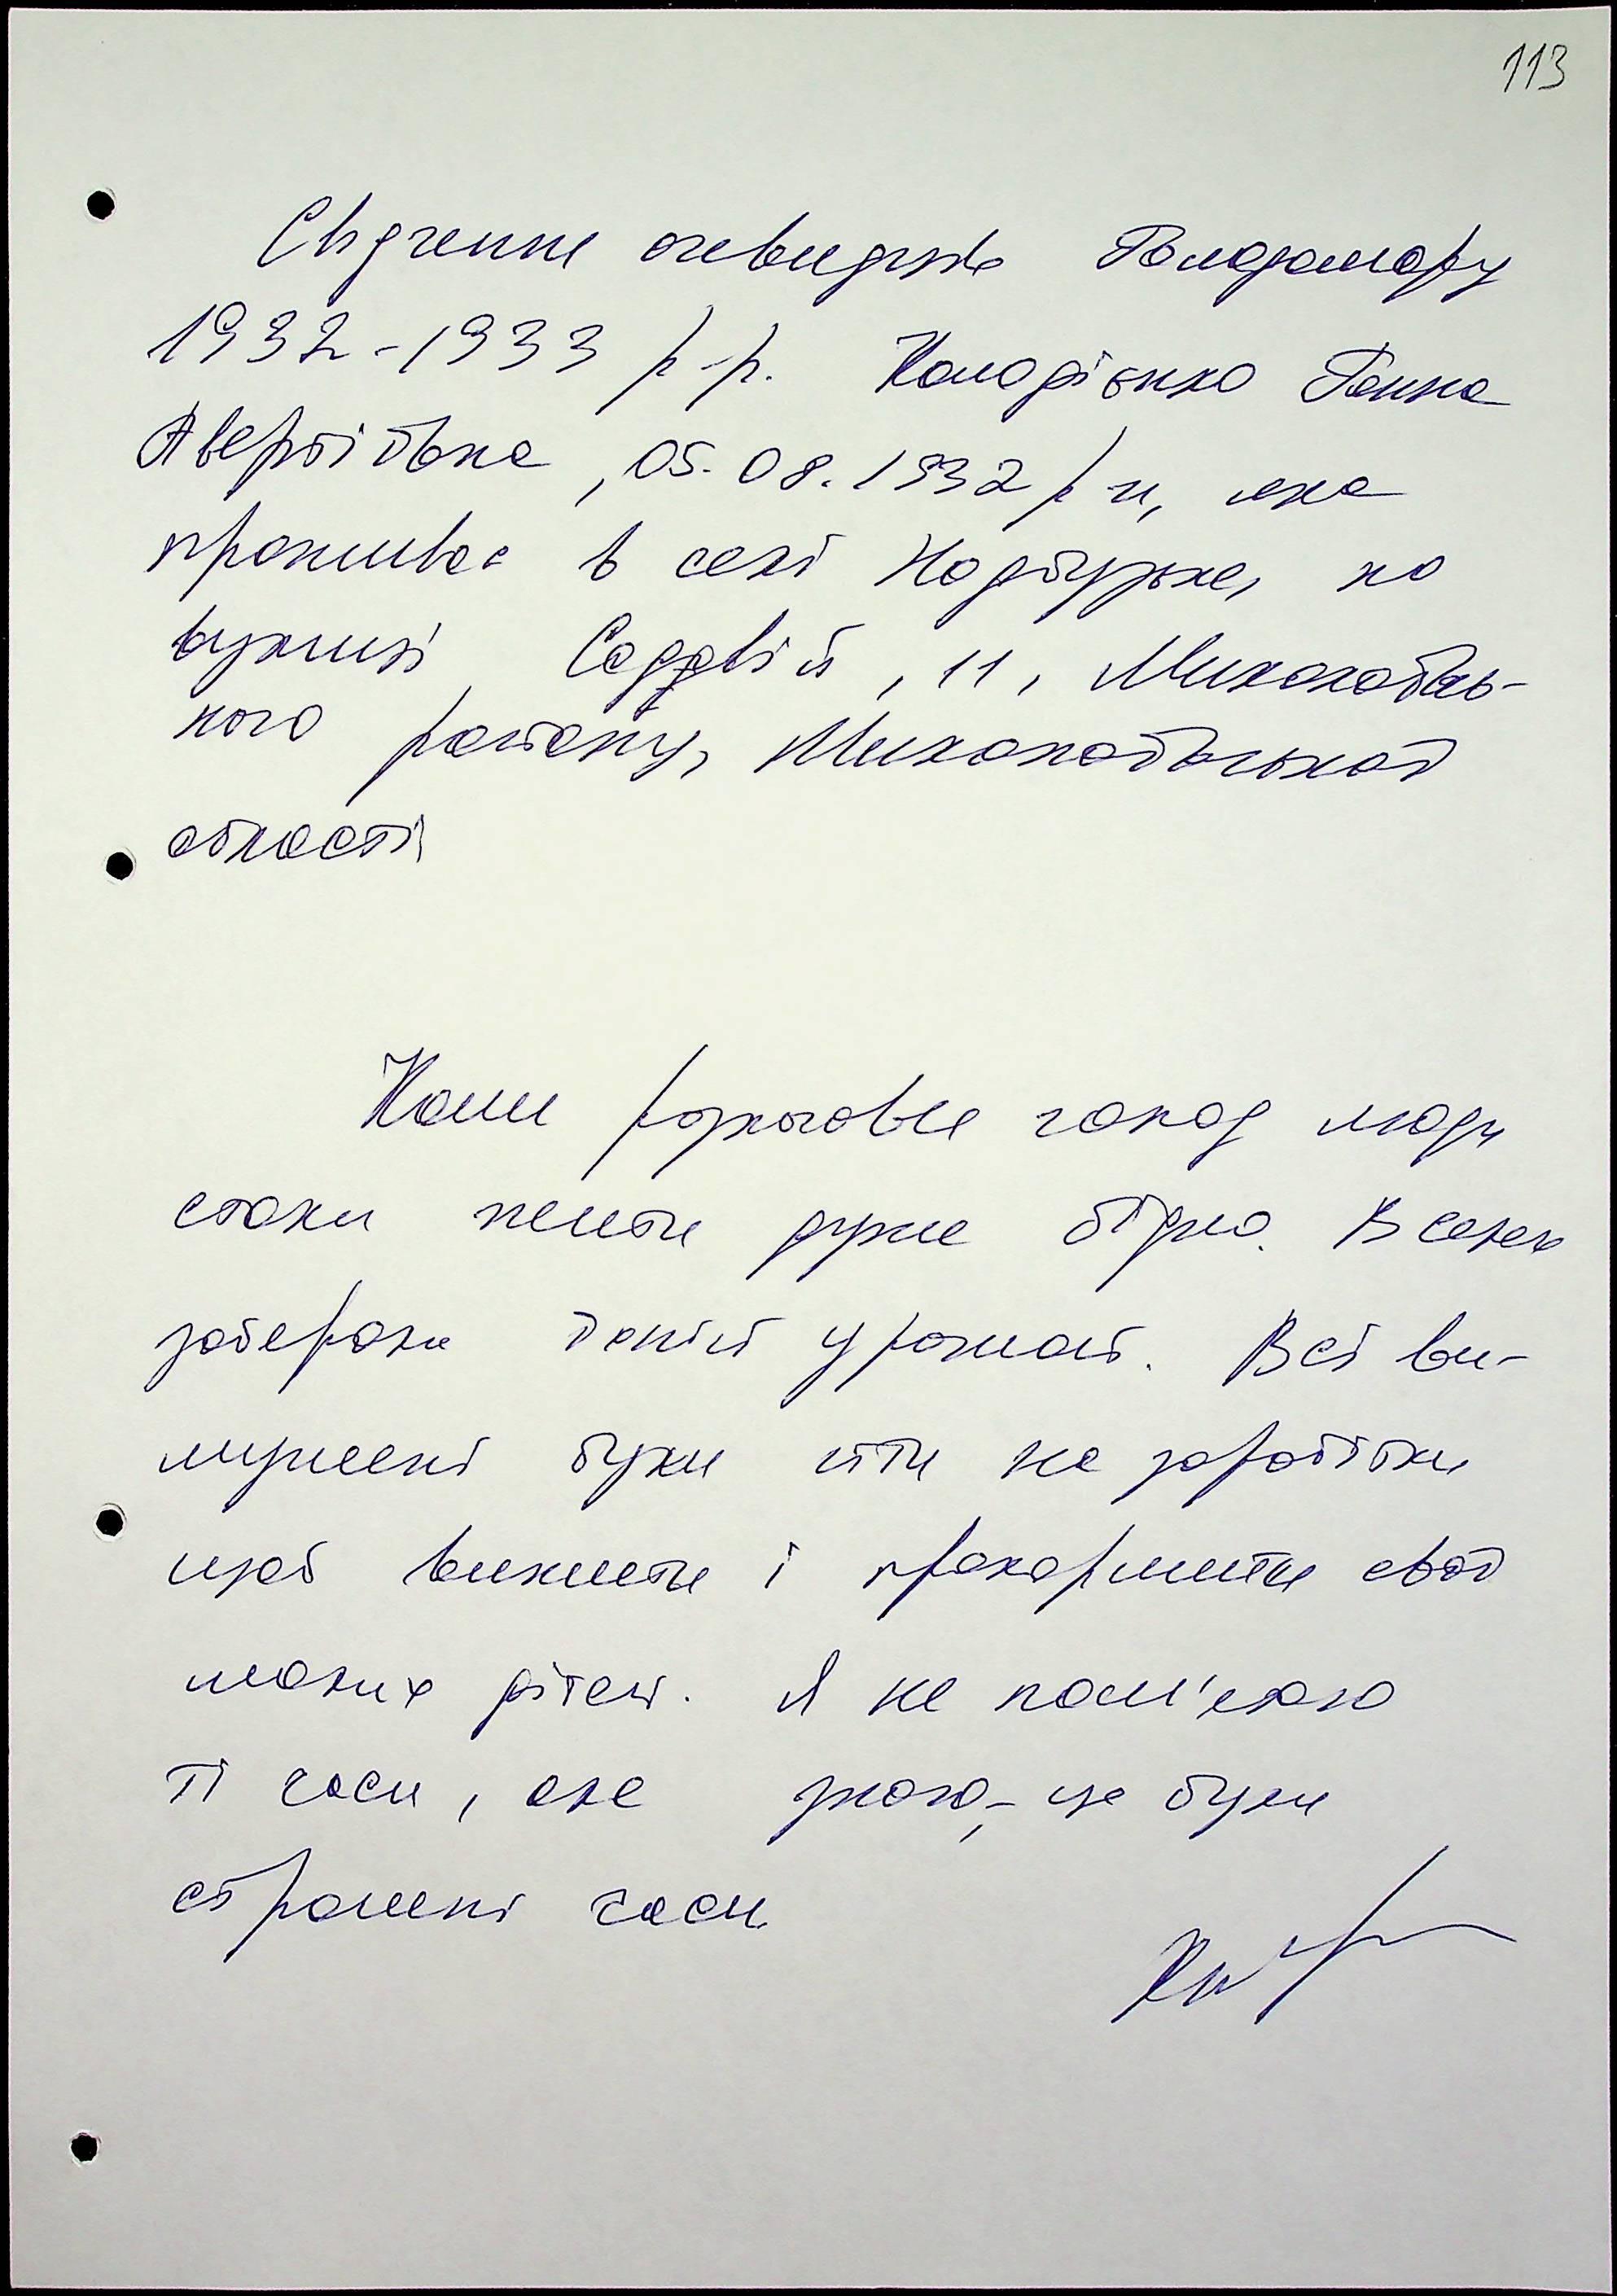 113
Свідчення очевидців Голодомору
1932-1933 р-р. Колодієнко Ганна
Авертіївна, 05.08.1932 р-н, яка
проживає в селі Надбузьке, по
вулиці Садовій, 11, Миколаївсь-
кого району, Миколаївської
області
Коли розпочався голод люди
стали жити дуже бідно. В селах
забирали їхній урожай. Всі ви-
мушені були йти на заробітки
щоб вижити і прокормити свої
малих дітей. Я не пам'ятаю
ті часи, але знаю, - це були
страшні часи